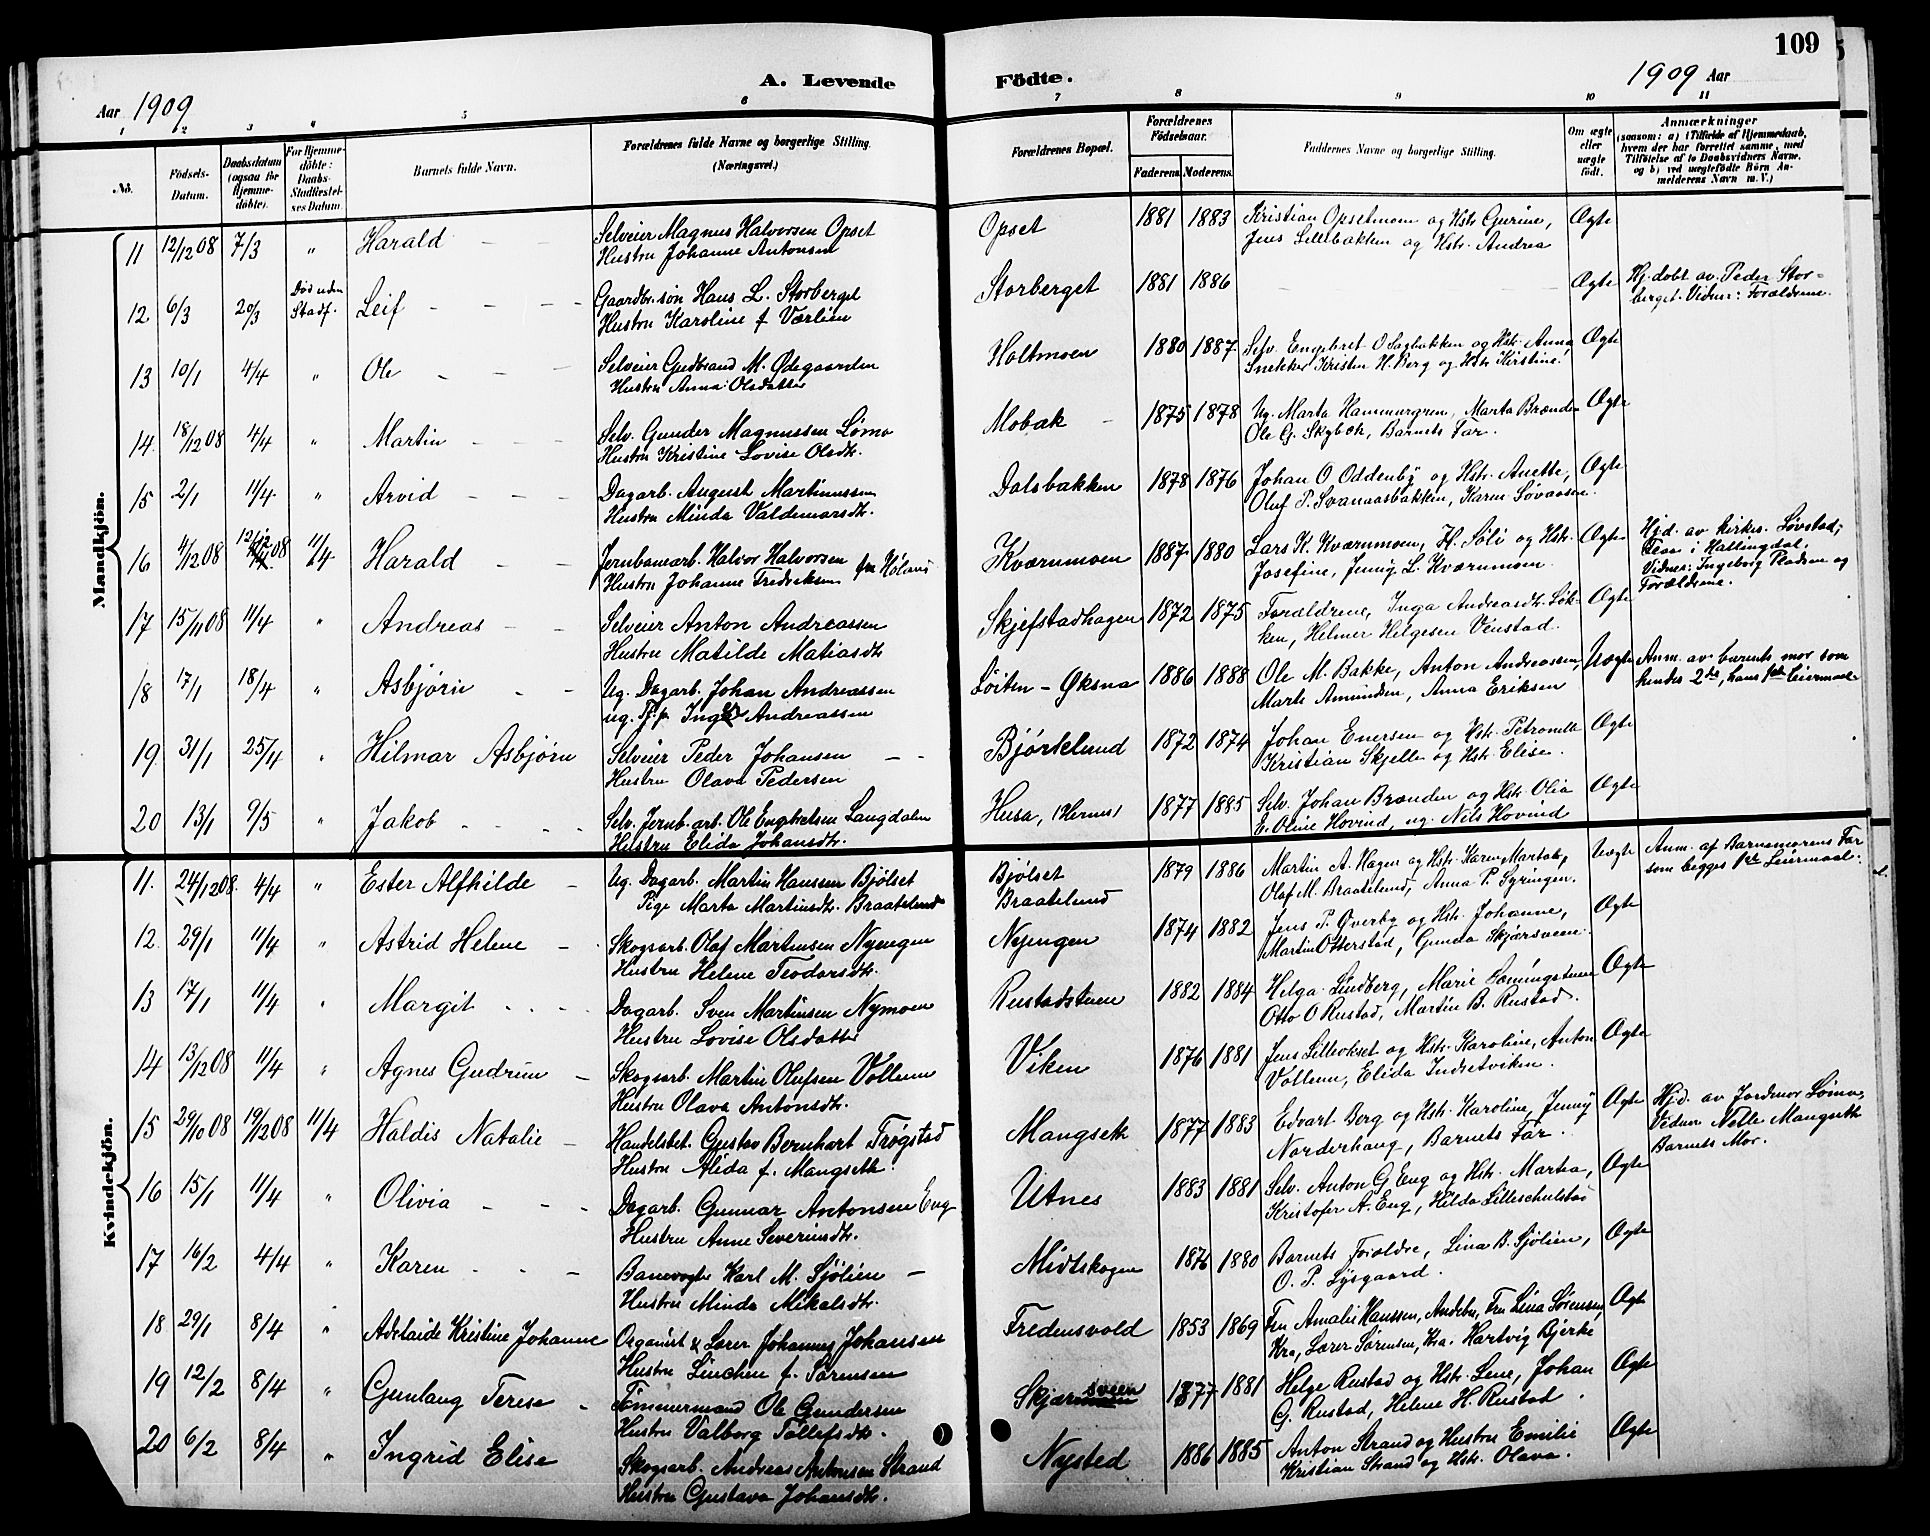 109
A. Levende Födte.
Aar 1909
1909 Aar
1 2 3 4 5 6 7 8 9 10 11
No.
Födsels-Datum.
Daabsdatum (ogsaa for Hjemmedöbte).
For Hjemmedöbte: Daabs-Stadfestelses Datum.
Barnets fulde Navn.
Forældrenes fulde Navne og borgerlige Stilling. (Næringsvei.)
Forældrenes Bopæl.
Forældrenes Födselsaar. Faderens. Moderens.
Faddernes Navne og borgerlige Stilling.
Om ægte eller uægte födt.
Anmærkninger (saasom: a) i Tilfælde af Hjemmedaab, hvem der har forrettet samme, med Tilföielse af to Daabsvidners Navne, og b) ved uægtefödte Börn Anmelderens Navn m. V.)
Mandkjön.
11 12/12 08 7/3 " Harald Selveier Magnus Halvorsen Opset Opset 1881 1883 Kristian Opsetmoen og Hstr. Gurine, Ægte
Hustru Johanne Antonsen Jens Lillebakken og Hstr. Andrea
12 6/3 20/3 Død uden Stadf. Leif Gaardbr.søn Hans L. Storberget Storberget 1881 1886 Ægte Hj. døbt av Peder Stor-
Hustru Karoline f. Værlien berget. Vidner: Forældrene.
13 10/1 4/4 " Ole Selveier Gudbrand M. Ødegaarden Holtmoen 1880 1887 Selv. Engebret O Sagbakken og Hstr. Anna, Ægte
Hustru Anna Olsdatter Snekker Kristen H. Berg og Hstr. Kirstine.
14 18/12 08 4/4 " Martin Selv. Gunder Magnussen Lømo Mobak 1875 1878 Ug. Marta Hammergren, Marta Brænden Ægte
Hustru Kristine Lovise Olsdtr. Ole G. Skybak, Barnets Far.
15 2/1 11/4 " Arvid Dagarb. August Martinussen Dalsbakken 1878 1876 Johan O Oddenby og Hstr. Anette, Ægte
Hustru Minda Valdemarsdtr. Oluf P. Svanaasbakken, Karen Løvaasen.
16 4/12 08 12/12 08 11/4 Harald Jernbanearb. Halvor Halvorsen Kværnmoen 1887 1880 Lars K. Kværnmoen, H. Sóli og Hstr. Ægte Hjd. av kirkes. Løvstad,
Hustru Johanne Fredriksen Josefine, Jenny L. Kværnmoen. Flaa i Hallingdal.
Vidner: Ingeborg Pladsen og
Forældrene.
17 15/11 08 11/4 " Andreas Selveier Anton Andreassen Skjefstadhagen 1872 1875 Forældrene, Inga Andreasdtr. Løk- Ægte
Hustru Matilde Matiasdtr. ken, Helmer Helgesen Venstad.
18 17/1 18/4 " Asbjørn Ug. Dagarb. Johan Andreassen Løiten - Øksna 1886 1888 Ole M. Bakke, Anton Andreassen, Uægte Anm. av barnets mor som
ug. Tj.p. Inga Andreassen Marte Amundsen, Anna Eriksen hendes 2de, hans 1ste Leiermaal.
19 31/1 25/4 " Hilmar Asbjørn Selveier Peder Johansen Bjørklund 1872 1874 Johan Enersen og Hstr. Petronella Ægte
Hustru Olava Pedersen Kristian Skjelle og Hstr. Elise.
20 13/1 9/5 " Jakob Selv. Jernb.arb. Ole Engbretsen Langdalen Husa, (Hernes) 1877 1885 Selv. Johan Brænden og Hstr. Olia Ægte
Hustru Elida Johansdtr. E. Oline Hovind, ug. Nils Hovind
Kvindekjön.
11. 24/12 08. 4/4 " Ester Alfhilde Ug. Dagarb. Martin Hanssen Bjølset Bjølset 1879 1886 Martin A. Hagen og Hstr. Karen, Uægte Anm. af Barnemorens Far
Pige Marta Martinsdtr. Braatelund Braatelund Olaf M. Braatelund, Anna P. Syringen. som begges 1ste Leiermaal.
12. 29/1 11/4 " Astrid Helene Skogsarb. Olaf Martinsen Nyengen Nyengen 1874 1882 Jens P. Øverby og Hstr. Johanne, Ægte
Hustru Helene Teodorsdtr. Martin Otterstad, Gunda Skjærsveen.
13 17/1 11/4 " Margit Dagarb. Sven Martinsen Nymoen Rustadstuen 1882 1884 Helga Lindberg, Marie Ægte
Hustru Lovise Olsdatter Otto O Rustad, Martin B. Rustad.
14 13/12 08 11/4 " Agnes Gudrun Skogsarb. Martin Olufsen Vollum Viken 1876 1881 Jens Lilleokset og Hstr. Karoline, Anton Ægte
Hustru Olava Antonsdtr. Vollum, Elida Indsetviken.
15 29/10 08 19/12 08 11/4 Haldis Natalie Handelsbet. Gustav Bernhart Trøgstad Mangseth 1877 1883 Edvart Berg og Hstr. Karoline, Jenny Ægte Hjd. av Jordmor Lømo,
Hustru Alida f. Mangseth. Norderhaug, Barnets Far. Vidner Nelle Mangseth
Barnets Mor.
16 15/1 11/4 " Olivia Dagarb. Gunnar Antonsen Eng Utnes 1883 1881 Selv. Anton G Eng og Hstr. Martea, Ægte
Hustru Anne Severinsdtr. Kristofer A. Eng, Hilda Lilleschulstad
17 16/2 4/4 " Karen Banevogter Karl M. Sjölien Midtskogen 1876 1880 Barnets Forældre, Lina B. Sjölien, Ægte
Hustru Minda Mikalsdtr. O. P. Lysgaard.
18 29/1 8/4 " Adelaide Kristine Johanne Organist & Lærer Johannes Johansen Fredensvold 1853 1869 Fru Amalie Hanssen, Andebu, Fru Lina Sørensen, Ægte
Hustru Linchen f. Sørensen Kra, Lærer Sørensen, Kra. Hartvig Bjerke
19 12/2 8/4 " Gunlaug Terese Tömmermand Ole Gundersen Skjærsveen 1877 1881 Helge Rustad og Hstr. Lene, Johan Ægte
Hustru Valborg Tollefsdtr. G. Rustad, Helene H. Rustad.
20 6/2 8/4 " Ingrid Elise Skogsarb. Andreas Antonsen Strand Nysted 1886 1885 Anton Strand og Hustru Emilie Ægte
Hustru Gustava Johansdtr. Kristian Strand og Hstr. Olava.